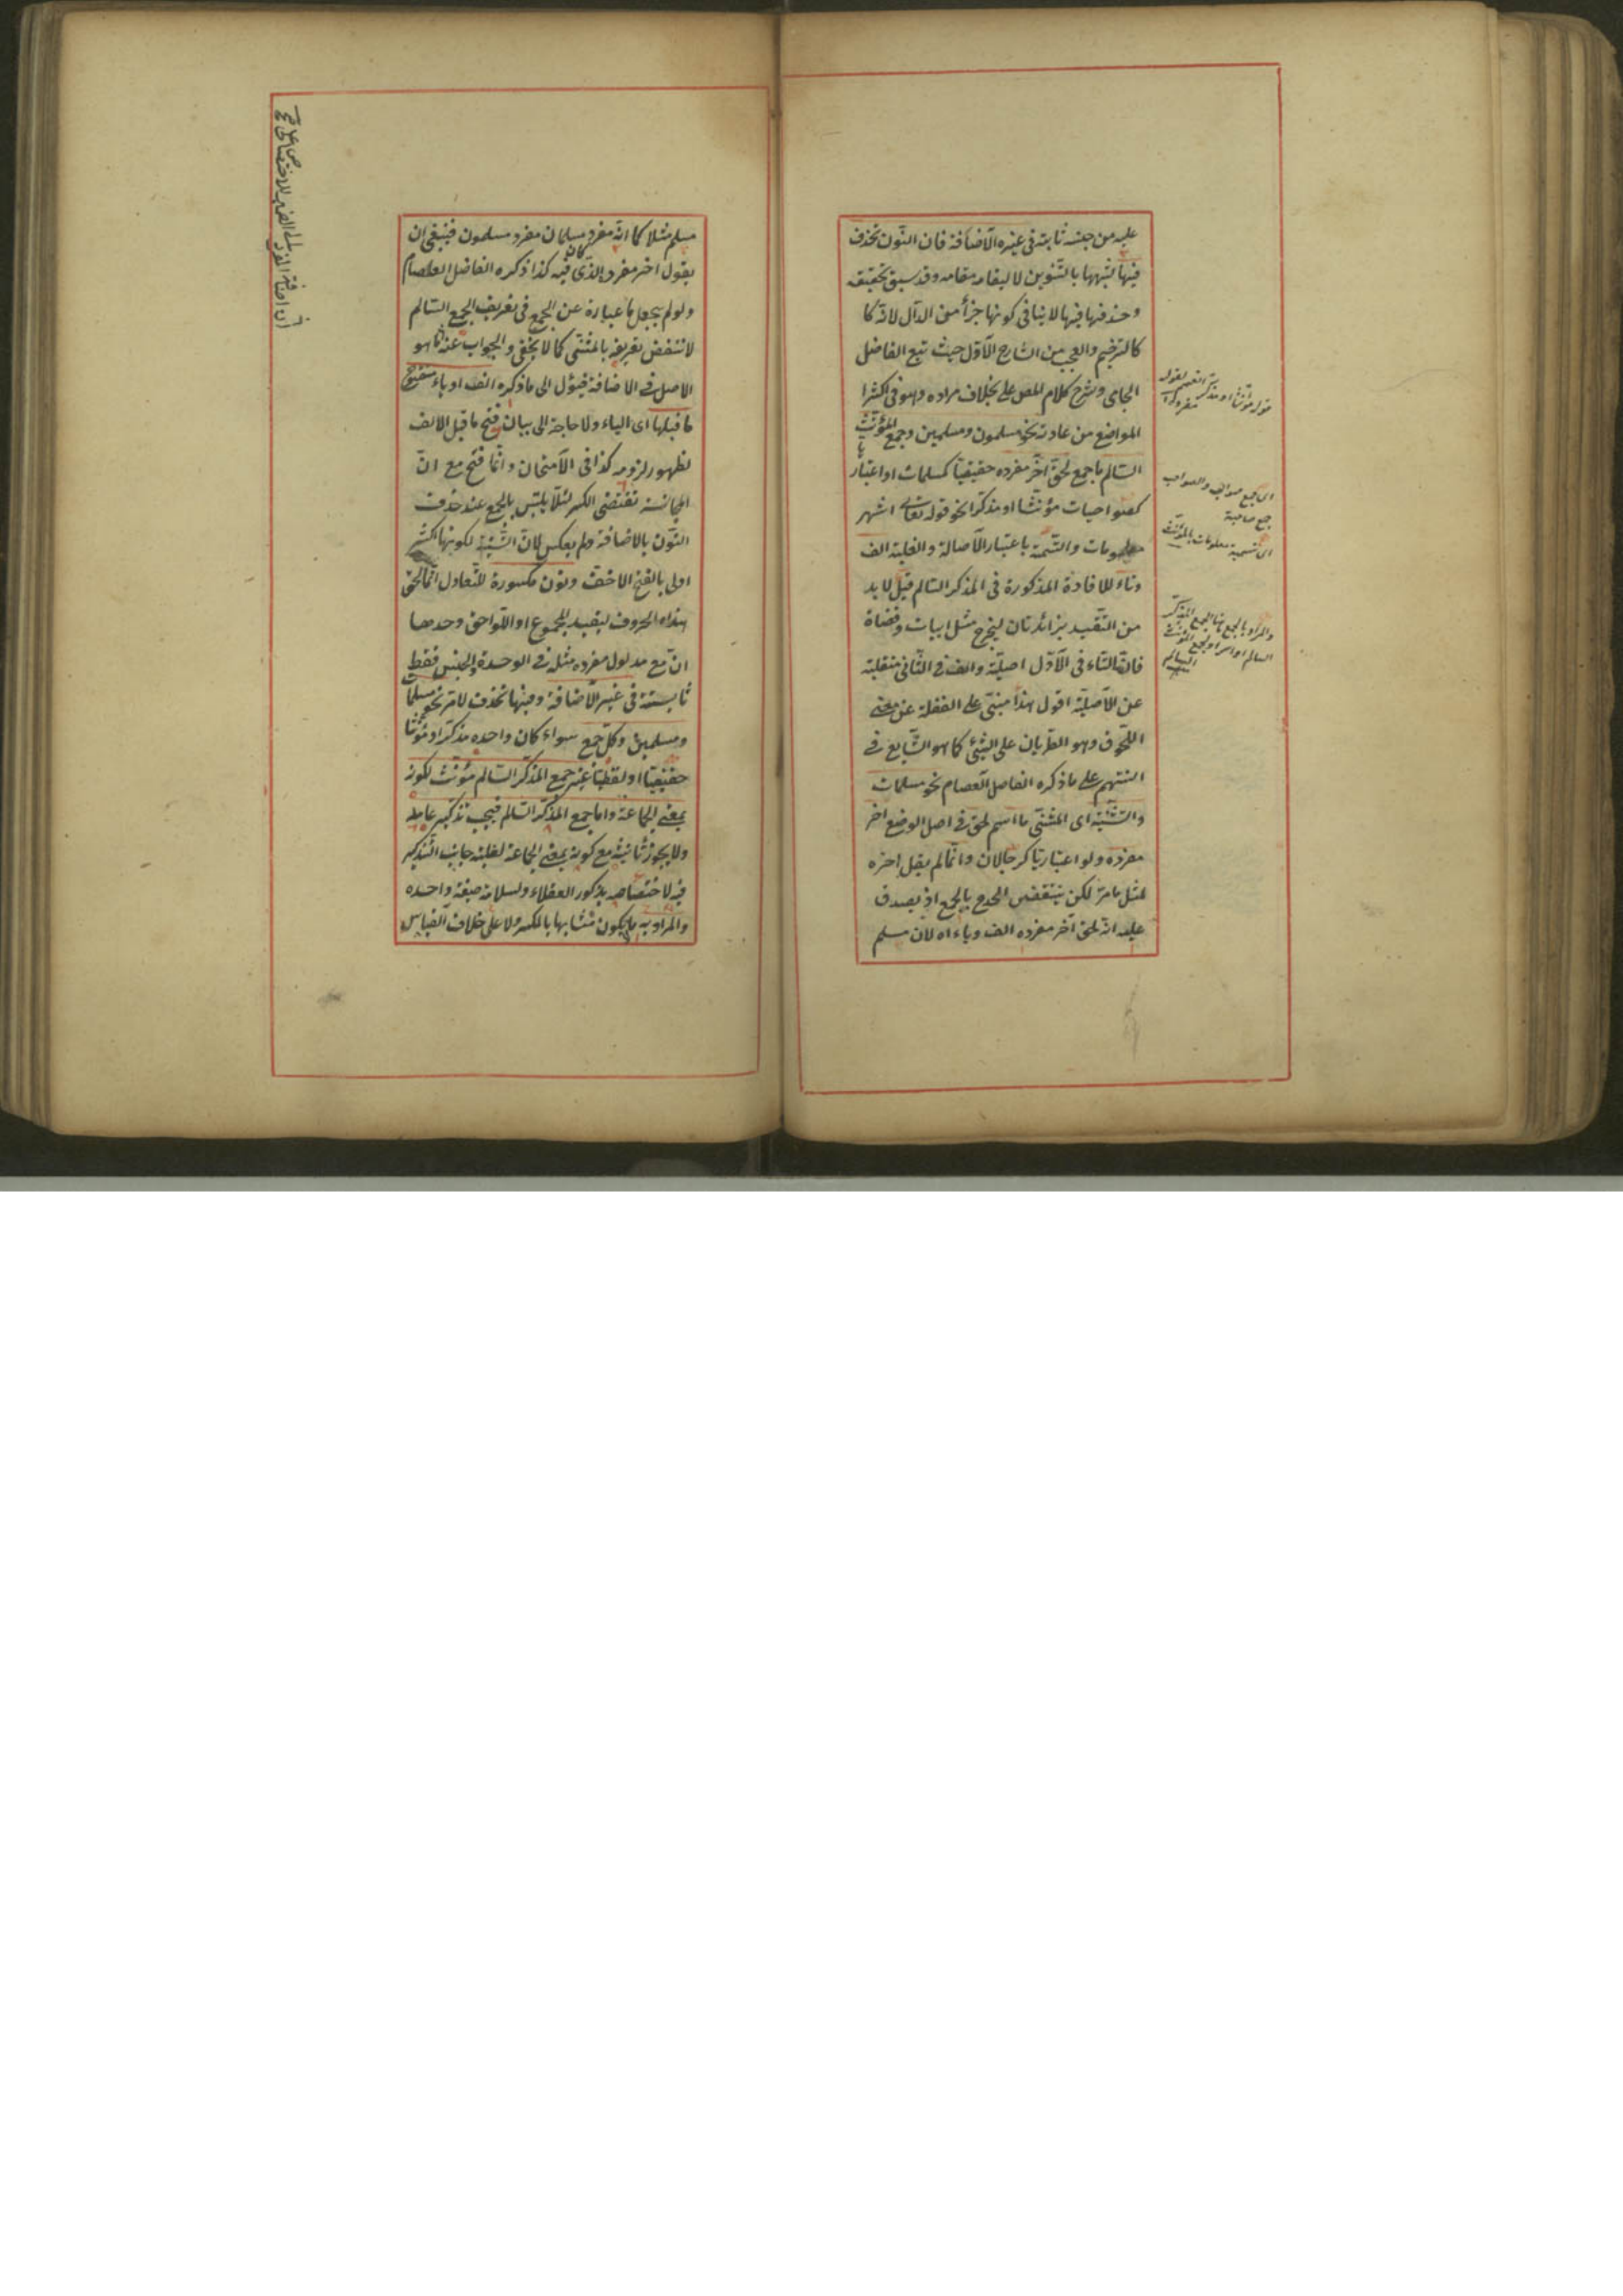 عليه من جنسه ثابتة في غيره الاضافة فان النون تحذف
فيها لشبهها بالتنوين لا لبقاء مقامه وقد سبق تحقيقه
وحذفها فيها لا ينافي كونها جزأ من الدال لانه كا
كالترخيم والعجب من الشارح الاول حيث تبع الفاضل
الجامي وشرح كلام المص على بخلاف مراده وهو في اكثر
المواضع من عادته نحو مسلمون ومسلمين وجمع المؤنث
السالم ما جمع لحق آخر مفرده حقيقيا كمسلمات او اعتباريا
كصواحبات مؤنثا او مذكرا نحو قوله تعالى اشهر
معلومات والتسمية باعتبار الاصالة والغلبة الف
وتاء للافادة المذكورة في المذكر السالم قيل لا بد
من التقييد بزائدتان ليخرج مثل ابيات وقضاة
فان التاء في الاول اصلية والف في الثاني منقلبة
عن الاصلية اقول هذا مبني على الغفلة عن معنى
اللحوق وهو الطريان على الشيء كما هو الشايع في
السنتهم على ما ذكره الفاضل العصام نحو مسلمات
والتثنية اى المثنى ما اسم لحق في اصل الوضع اخر
مفرده ولو اعتباريا كرجالان وانما لم يقل اخره
لمثل ما مر لكن ينتقض الحد ح بالجمع اذ يصدق
عليه انه لحق آخر مفرده الف وياء اه لان مسلم
قوله مؤنثا او مذكر
اى جمع صواحب والصواحب
جمع صاحبة
اى تسمية معلومات بالمؤنث
والمراد بالجمع هنا الجمع المذكر
السالم او اسرا وجمع المؤنث
السالم
مسلم مثلا كما انه مفرد مسلمان مفرد مسلمون فينبغي ان
يقول اخر مفرده الذى كان فيه كذا ذكره الفاضل العصام
ولو لم يجعل ما عبارة عن الجمع في تعريف الجمع السالم
لانتقض تعريفه بالمثنى كما لا يخفى والجواب عنه ما هو
الاصل في الاضافة فيؤل الى ما ذكره الف او ياء مفتوح
ما قبلها اى الياء ولا حاجة الى بيان فتح ما قبل الالف
لظهور لزومه كذا في الامتحان وانما فتح مع ان
المجانسة تقتضى الكسر لئلا يلتبس بالجمع عند حذف
النون بالاضافة ولم يعكس لان التثنية لكونها اكثر
اولى بالفتح الاخف ونون مكسورة للتعادل انما لحق
هذه الحروف ليفيد المجموع او اللواحق وحدها
ان مع مدلول مفرده مثله في الوحدة والجنس فقط
ثابتة في غير الاضافة وفيها تحذف لما مر نحو مسلمان
ومسلمين وكل جمع سواء كان واحده مذكرا او مؤنثا
حقيقيا او لفظيا غير جمع المذكر السالم مؤنث لكونه
بمعنى الجماعة واما جمع المذكر السالم فيجب تذكير عامله
ولا يجوز تأنيثه مع كونه بمعنى الجماعة لغلبة جانب التذكير
فيه لاختصاصه بذكور العقلاء ولسلامة صيغة واحده
والمراد به ما يكون متشابها بالمكسر ولا على خلاف القياس